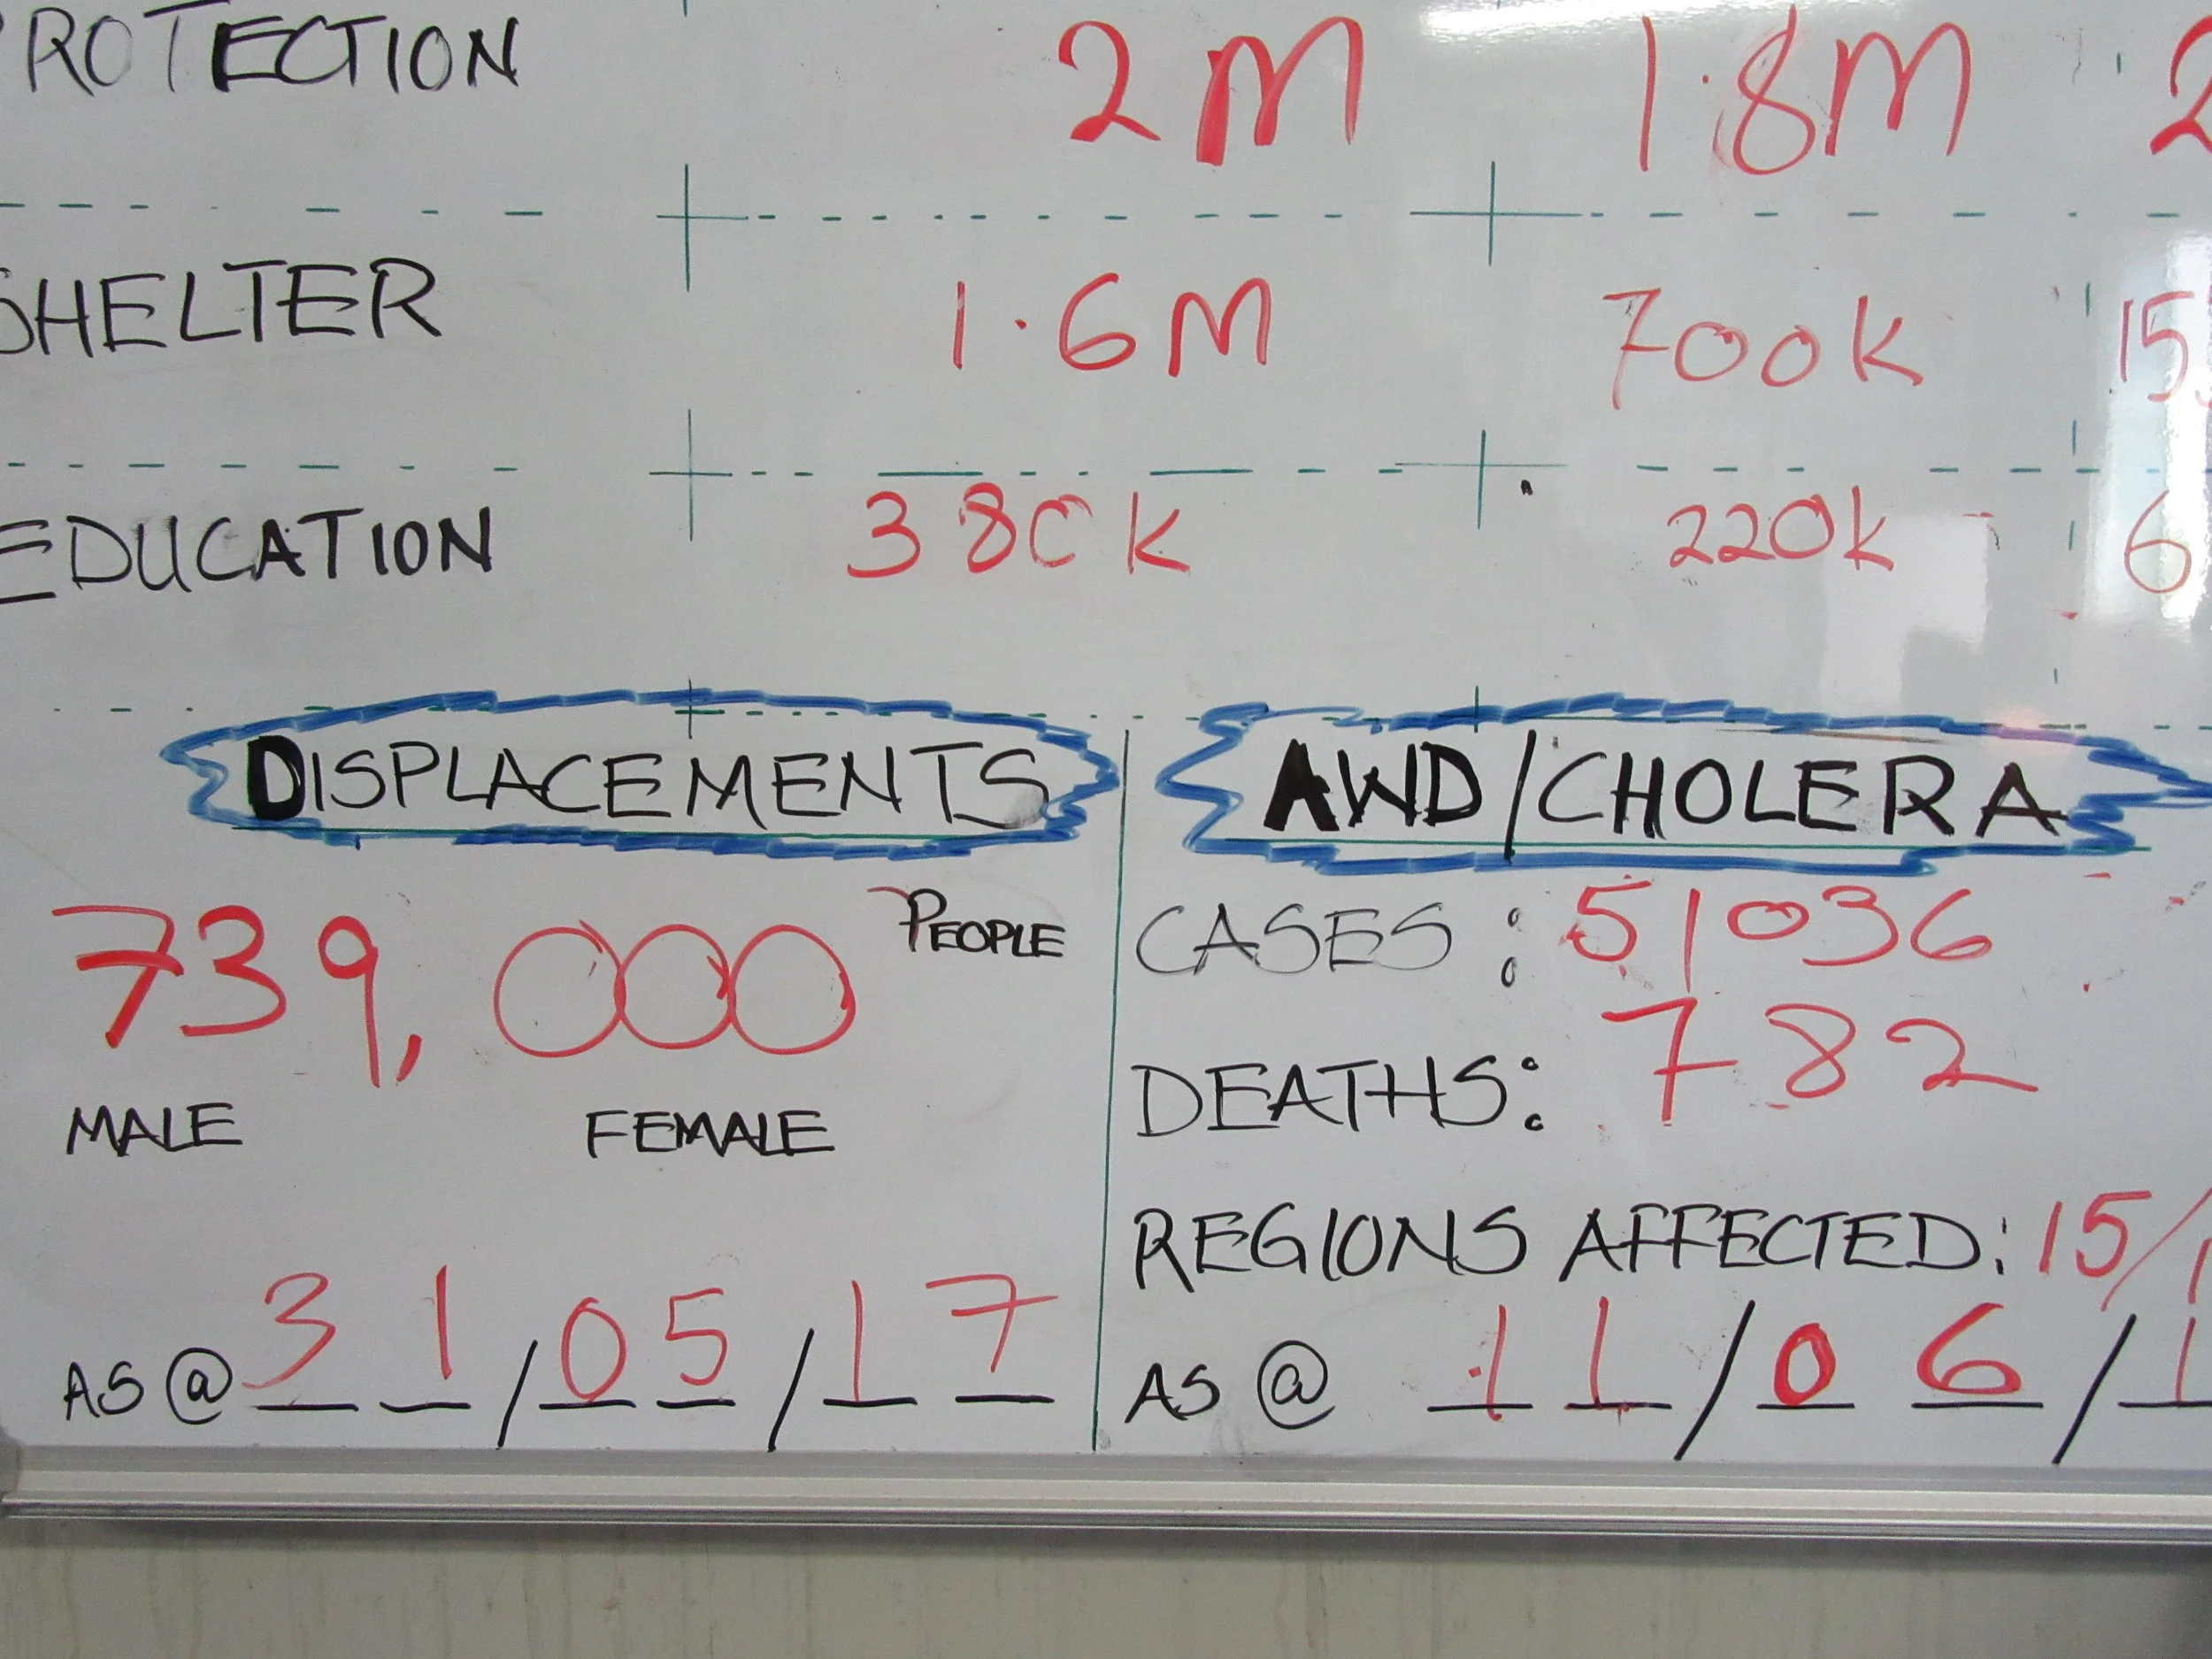 ROTECTION 2M 1.8M 2
SHELTER 1.6M 700K 15
EDUCATION 380K 220K 6
DISPLACEMENTS
739,000 PEOPLE
MALE FEMALE
AS @ 31/05/17
AWD/CHOLERA
CASES: 51036
DEATHS: 782
REGIONS AFFECTED: 15/1
AS @ 11/06/1